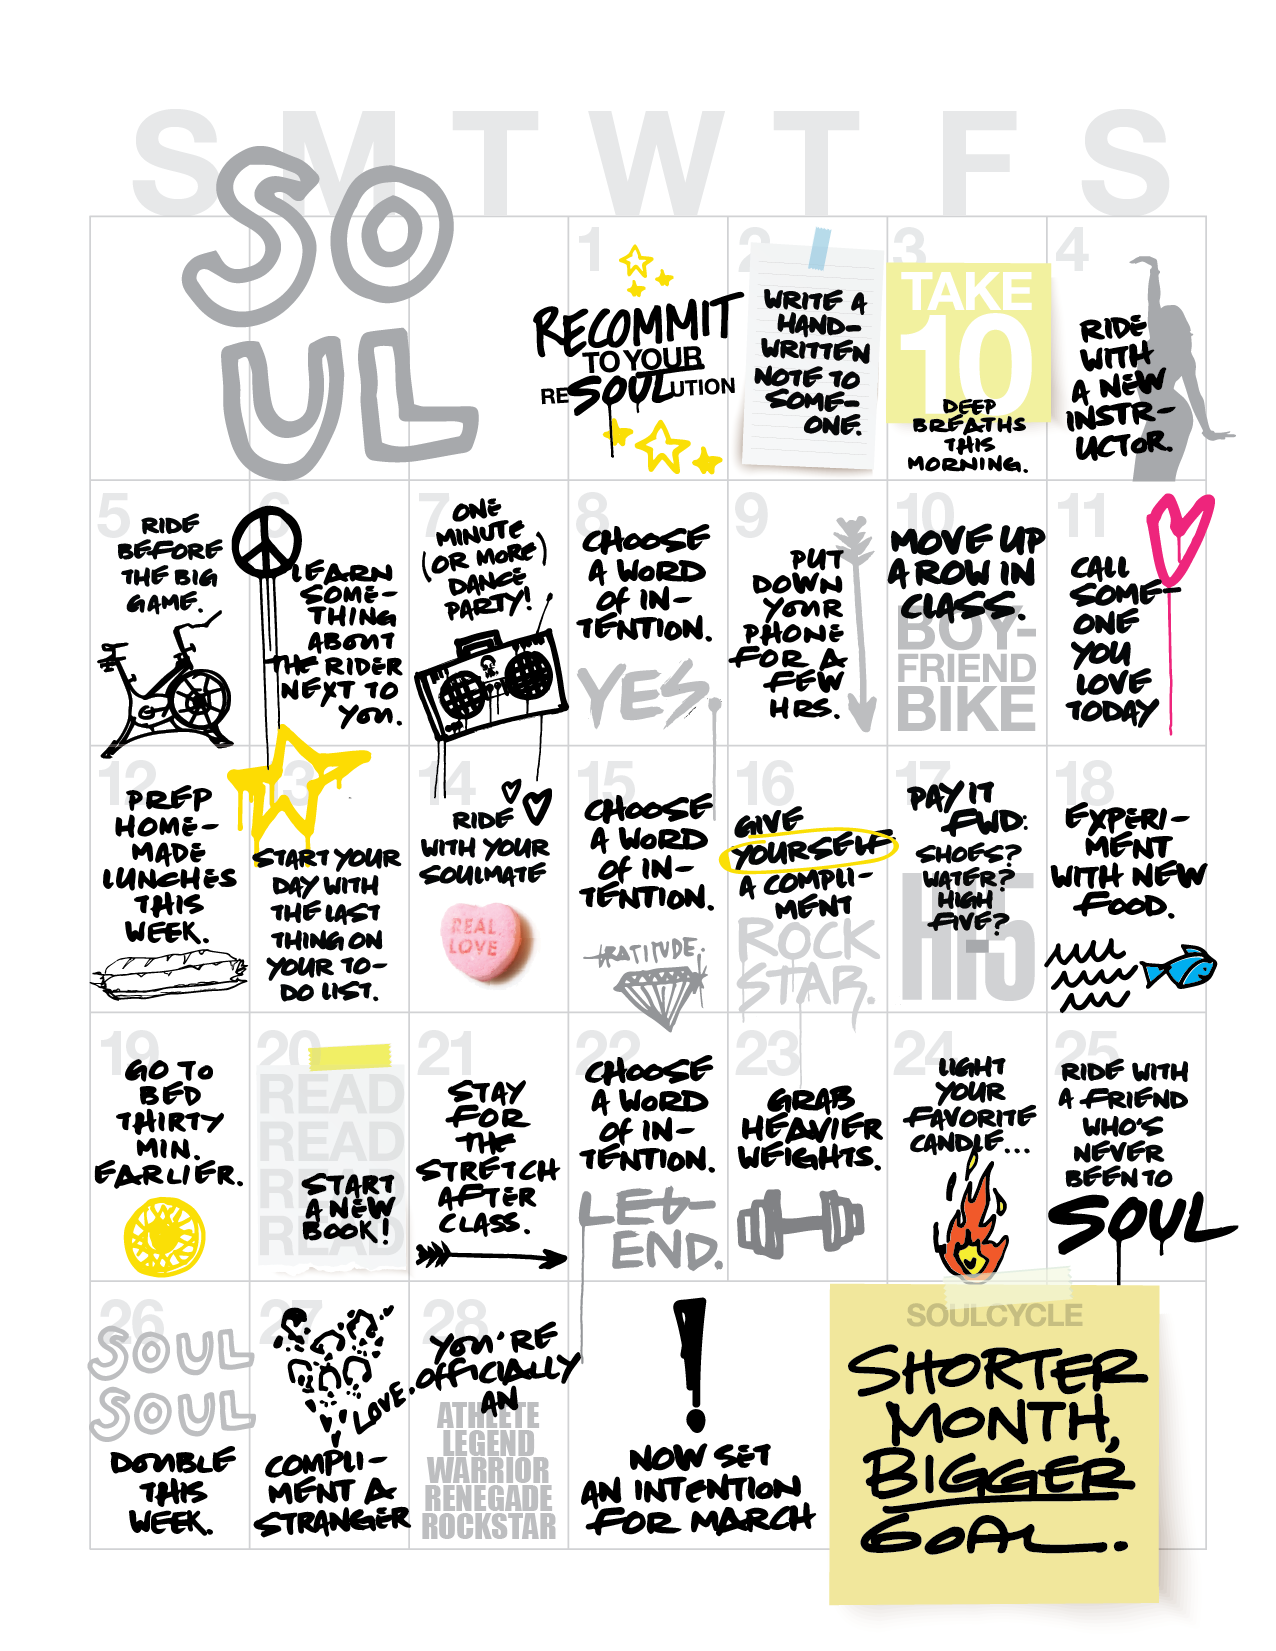 S M T W T F S
SO
UL
1
RECOMMIT
TO YOUR
RESOULUTION
2
WRITE A
HAND-
WRITTEN
NOTE TO
SOME-
ONE.
3
TAKE
10
DEEP
BREATHS
THIS
MORNING.
4
RIDE
WITH
A NEW
INSTR-
UCTOR.
5
RIDE
BEFORE
THE BIG
GAME.
6
LEARN
SOME-
THING
ABOUT
THE RIDER
NEXT TO
YOU.
7
ONE
MINUTE
(OR MORE)
DANCE
PARTY!
8
CHOOSE
A WORD
OF IN-
TENTION.
YES.
9
PUT
DOWN
YOUR
PHONE
FOR A
FEW
HRS.
10
MOVE UP
A ROW IN
CLASS.
BOY-
FRIEND
BIKE
11
CALL
SOME-
ONE
YOU
LOVE
TODAY
12
PREP
HOME-
MADE
LUNCHES
THIS
WEEK.
13
START YOUR
DAY WITH
THE LAST
THING ON
YOUR TO-
DO LIST.
14
RIDE
WITH YOUR
SOULMATE
REAL
LOVE
15
CHOOSE
A WORD
OF IN-
TENTION.
GRATITUDE.
16
GIVE
YOURSELF
A COMPLI-
MENT
ROCK
STAR.
17
PAY IT
FWD:
SHOES?
WATER?
HIGH
FIVE?
H-5
18
EXPERI-
MENT
WITH NEW
FOOD.
19
GO TO
BED
THIRTY
MIN.
EARLIER.
20
READ
READ
READ
READ
START
A NEW
BOOK!
21
STAY
FOR
THE
STRETCH
AFTER
CLASS.
22
CHOOSE
A WORD
OF IN-
TENTION.
LEG-
END.
23
GRAB
HEAVIER
WEIGHTS.
24
LIGHT
YOUR
FAVORITE
CANDLE...
25
RIDE WITH
A FRIEND
WHO'S
NEVER
BEEN TO
SOUL
26
SOUL
SOUL
DOUBLE
THIS
WEEK.
27
LOVE.
COMPLI-
MENT A
STRANGER
28
YOU'RE
OFFICIALLY
AN
ATHLETE
LEGEND
WARRIOR
RENEGADE
ROCKSTAR
!
NOW SET
AN INTENTION
FOR MARCH
SOULCYCLE
SHORTER
MONTH,
BIGGER
GOAL.